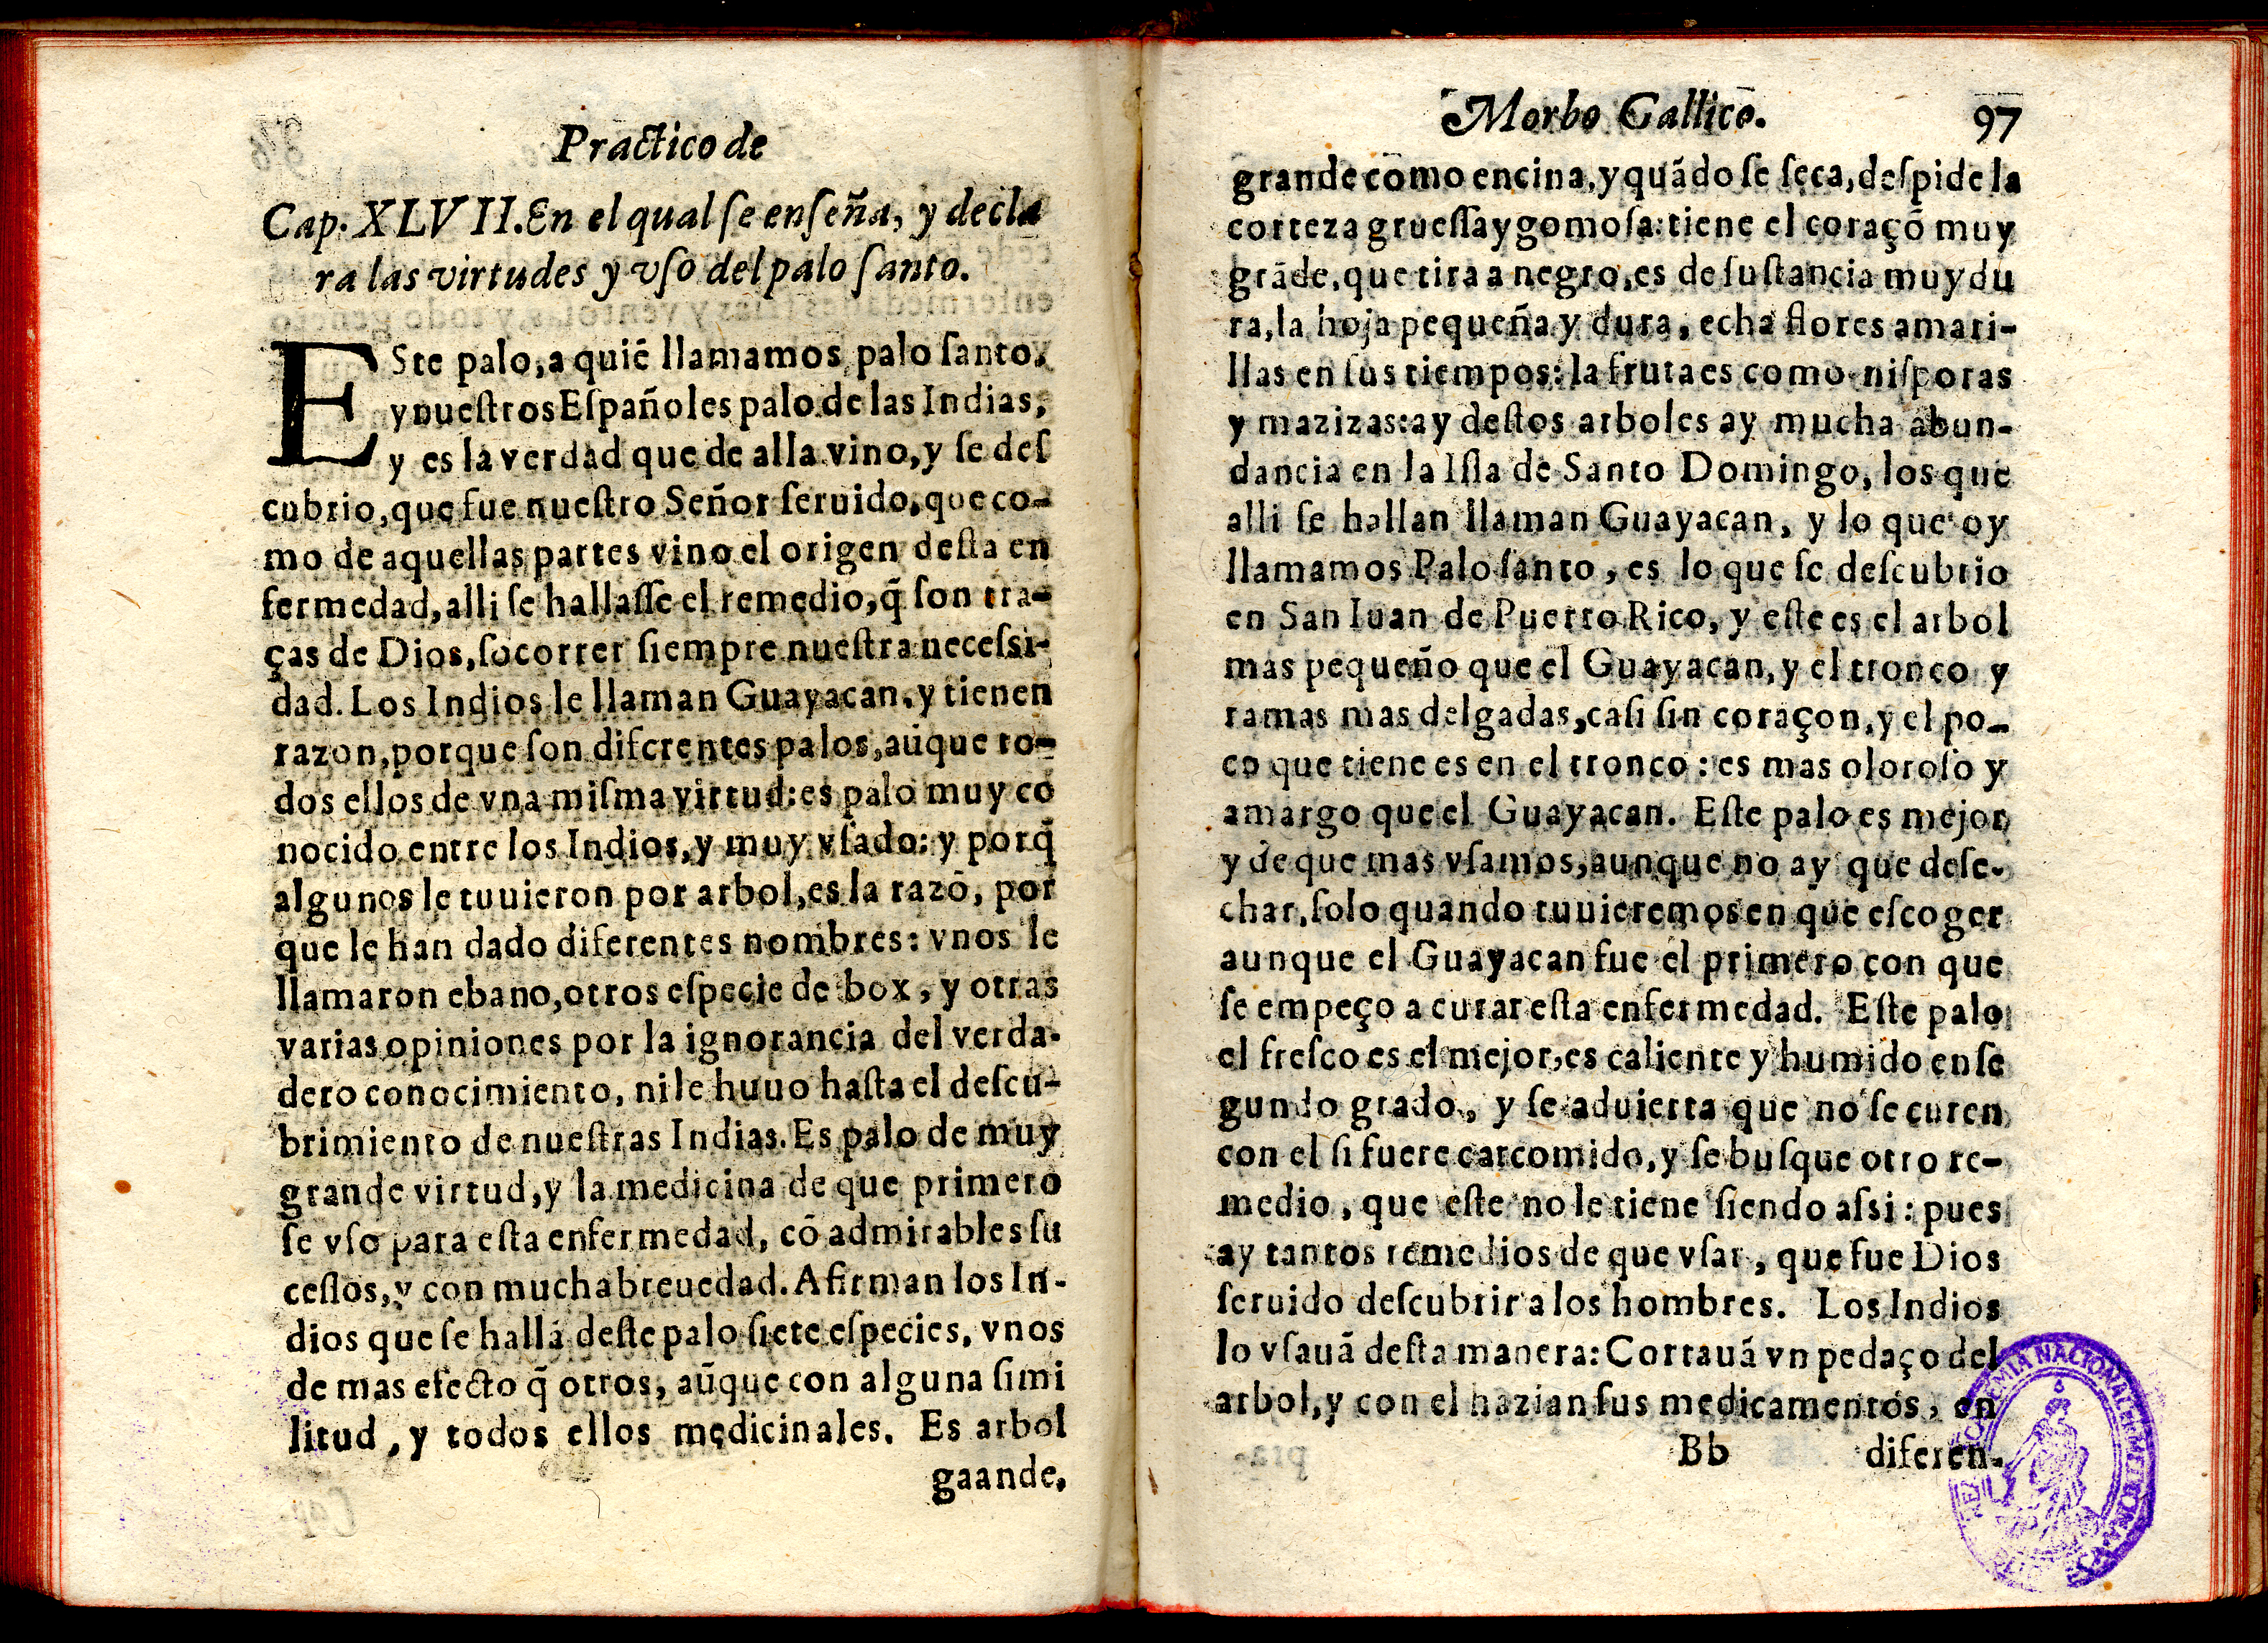 Practico de
Cap. XLVII. En el qual ſe enſeña, y decla
ra las virtudes y vſo del palo ſanto.
ESte palo, a quiē llamamos palo ſanto,
y nueſtros Eſpañoles palo de las Indias,
y es la verdad que de alla vino, y ſe deſ
cubrio, que fue nueſtro Señor ſeruido, que co-
mo de aquellas partes vino el origen deſta en
fermedad, alli ſe hallaſſe el remedio, q̃ ſon tra-
ças de Dios, ſocorrer ſiempre nueſtra neceſsi-
dad. Los Indios le llaman Guayacan, y tienen
razon, porque ſon diferentes palos, aūque to-
dos ellos de vna miſma virtud: es palo muy co
nocido entre los Indios, y muy vſado: y porq̃
algunos le tuuieron por arbol, es la razō, por
que le han dado diferentes nombres: vnos le
llamaron ebano, otros eſpecie de box, y otras
varias opiniones por la ignorancia del verda-
dero conocimiento, ni le huuo haſta el deſcu-
brimiento de nueſtras Indias. Es palo de muy
grande virtud, y la medicina de que primero
ſe vſo para eſta enfermedad, cō admirables ſu
ceſſos, y con mucha breuedad. Afirman los In-
dios que ſe hallā deſte palo ſiete eſpecies, vnos
de mas efecto q̃ otros, aūque con alguna ſimi
litud, y todos ellos medicinales. Es arbol
gaande,
Morbo Gallico. 97
grande como encina, y quādo ſe ſeca, deſpide la
corteza grueſſa y gomoſa: tiene el coraçō muy
grāde, que tira a negro, es de ſuſtancia muy du
ra, la hoja pequeña y dura, echa flores amari-
llas en ſus tiempos: la fruta es como niſporas
y mazizas: ay deſtos arboles ay mucha abun-
dancia en la Iſla de Santo Domingo, los que
alli ſe hallan llaman Guayacan, y lo que oy
llamamos Palo ſanto, es lo que ſe deſcubrio
en San Iuan de Puerto Rico, y eſte es el arbol
mas pequeño que el Guayacan, y el tronco y
ramas mas delgadas, caſi ſin coraçon, y el po-
co que tiene es en el tronco: es mas oloroſo y
amargo que el Guayacan. Eſte palo es mejor,
y de que mas vſamos, aunque no ay que deſe-
char, ſolo quando tuuieremos en que eſcoger
aunque el Guayacan fue el primero con que
ſe empeço a curar eſta enfermedad. Eſte palo
el freſco es el mejor, es caliente y humido en ſe
gundo grado, y ſe aduierta que no ſe curen
con el ſi fuere carcomido, y ſe buſque otro re-
medio, que eſte no le tiene ſiendo aſsi: pues
ay tantos remedios de que vſar, que fue Dios
ſeruido deſcubrir a los hombres. Los Indios
lo vſauā deſta manera: Cortauā vn pedaço del
arbol, y con el hazian ſus medicamentos, en
Bb diferen-